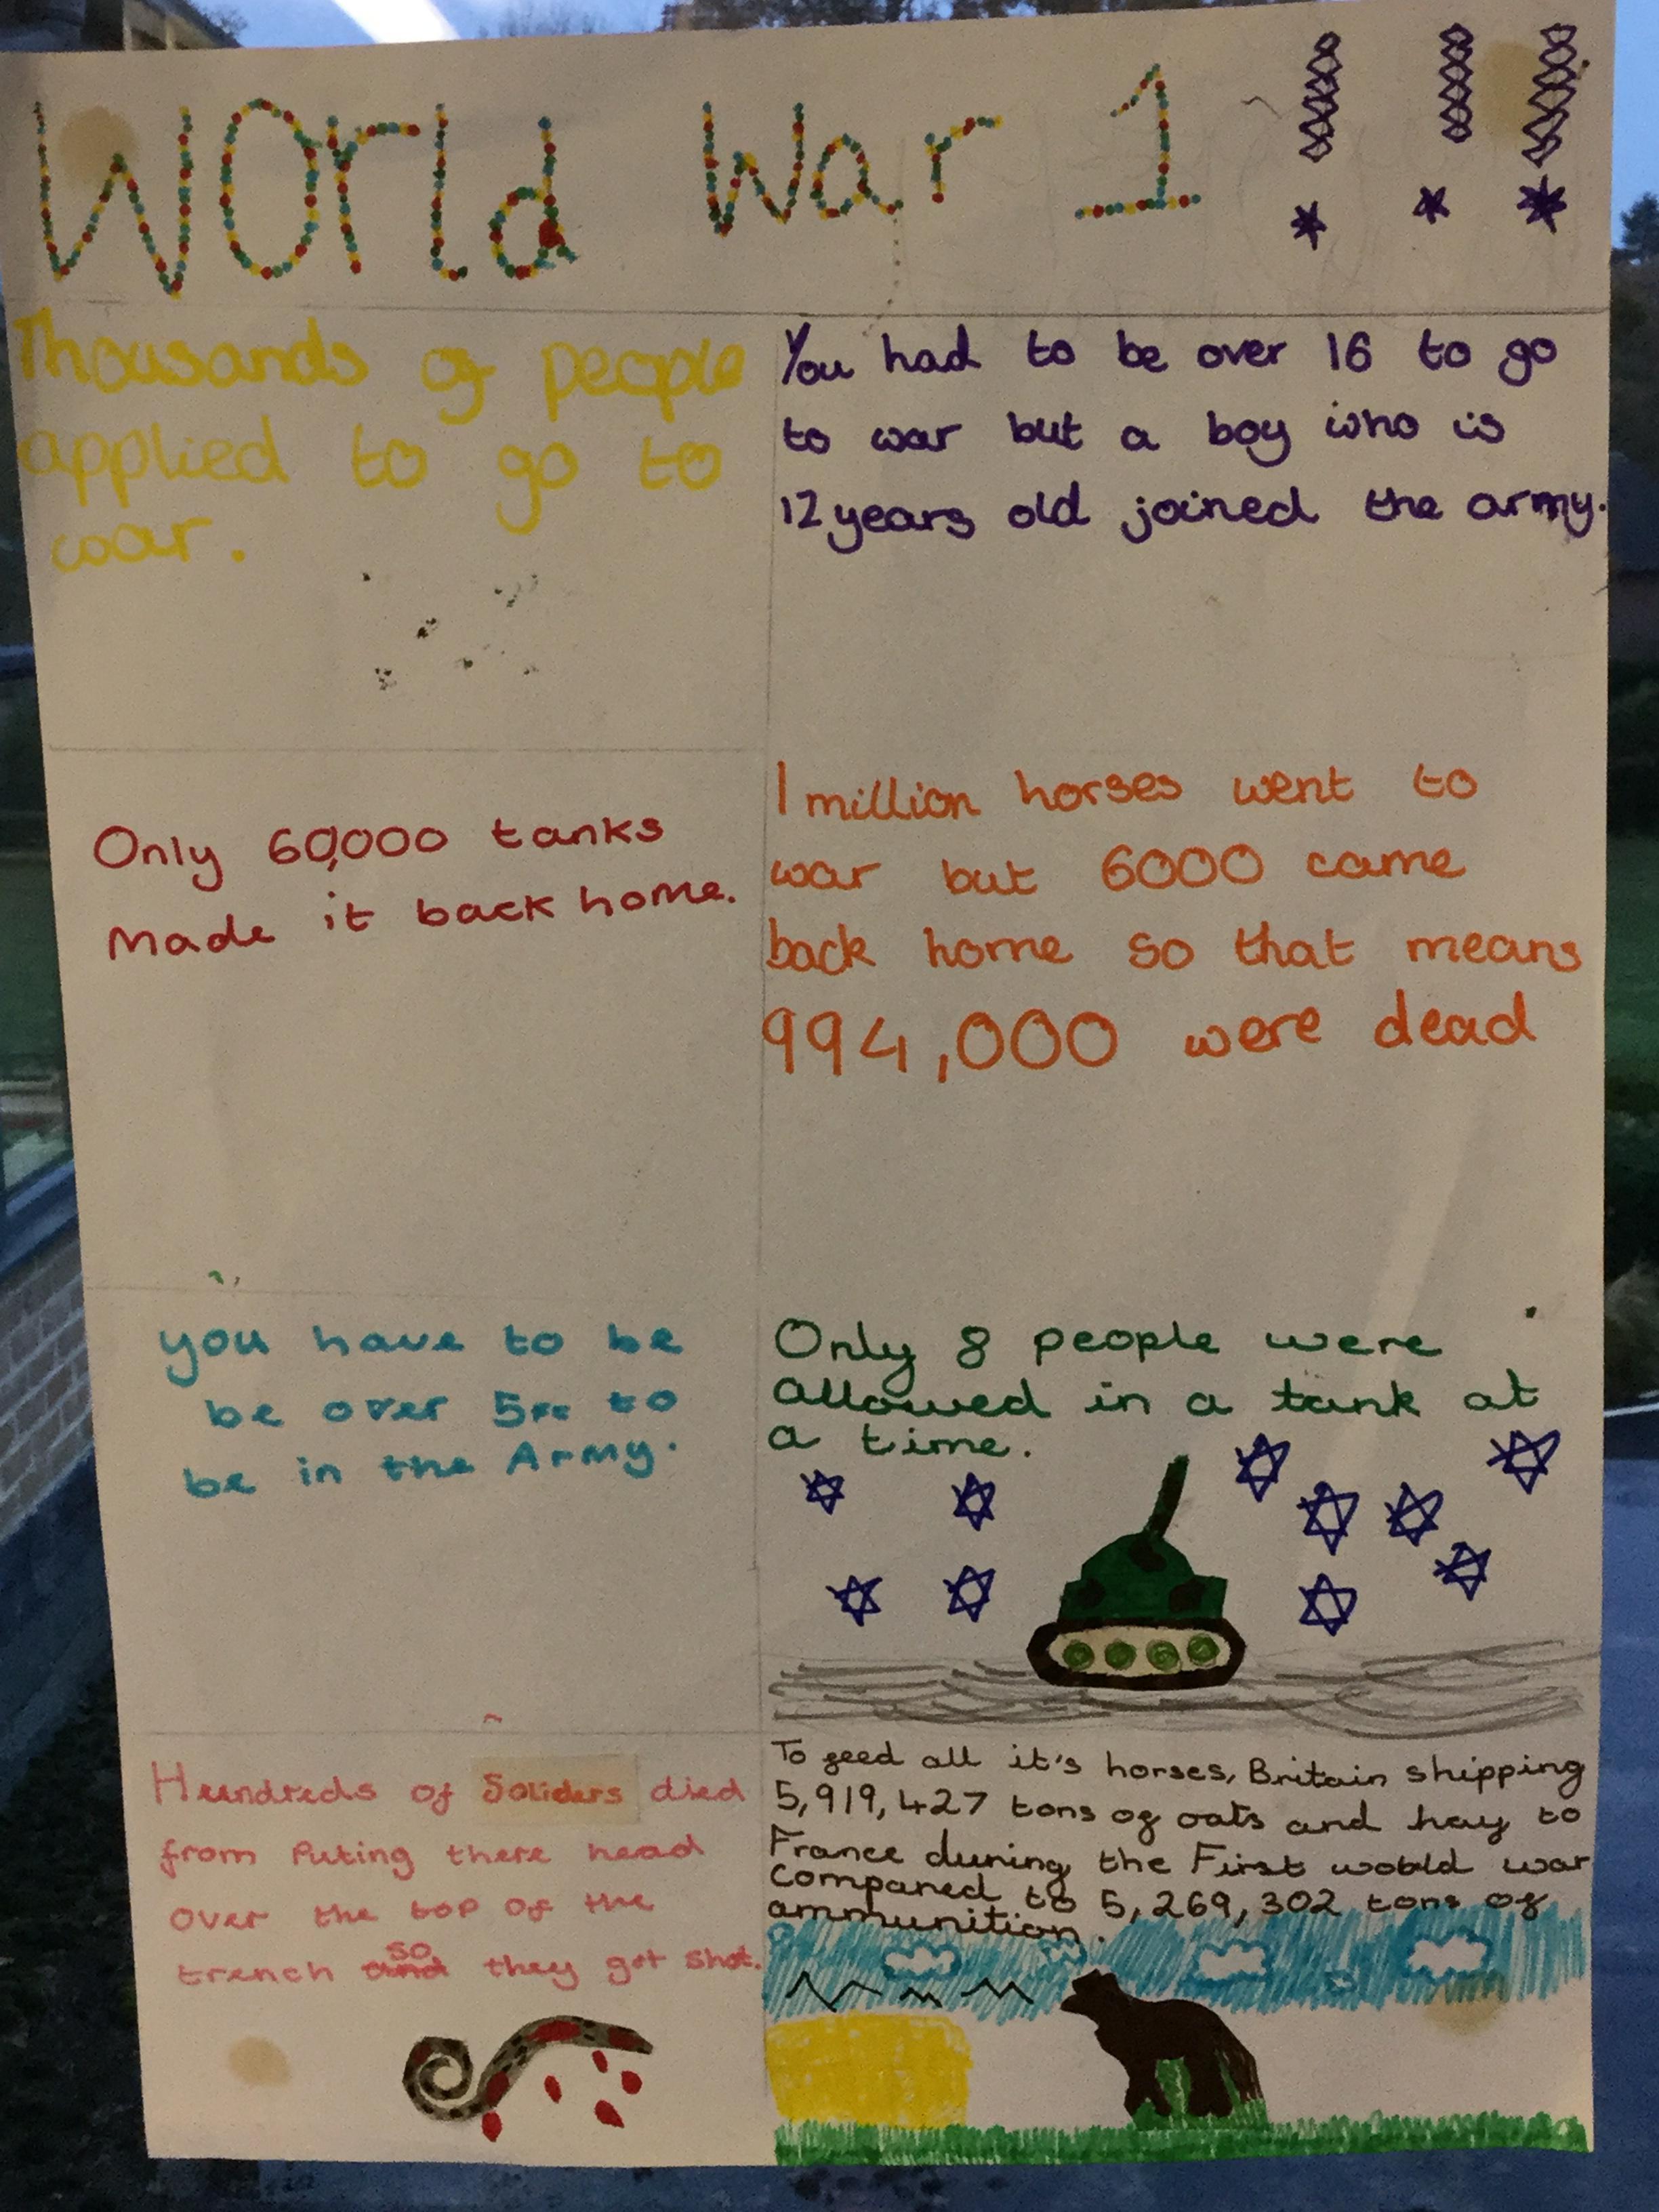 World War 1
Thousands of people
applied to go to
war.
You had to be over 16 to go
to war but a boy who is
12 years old joined the army.
Only 60,000 tanks
Made it back home.
1 million horses went to
war but 6000 came
back home so that means
994,000 were dead
you have to be
be over 5ft to
be in the Army.
Only 8 people were
allowed in a tank at
a time.
Hundreds of Soliders died
from Puting there head
over the top of the
trench so they got shot.
To feed all it's horses, Britain shipping
5,919,427 tons of oats and hay to
France during the First wobld war
Compared to 5,269,302 tons of
ammunition.